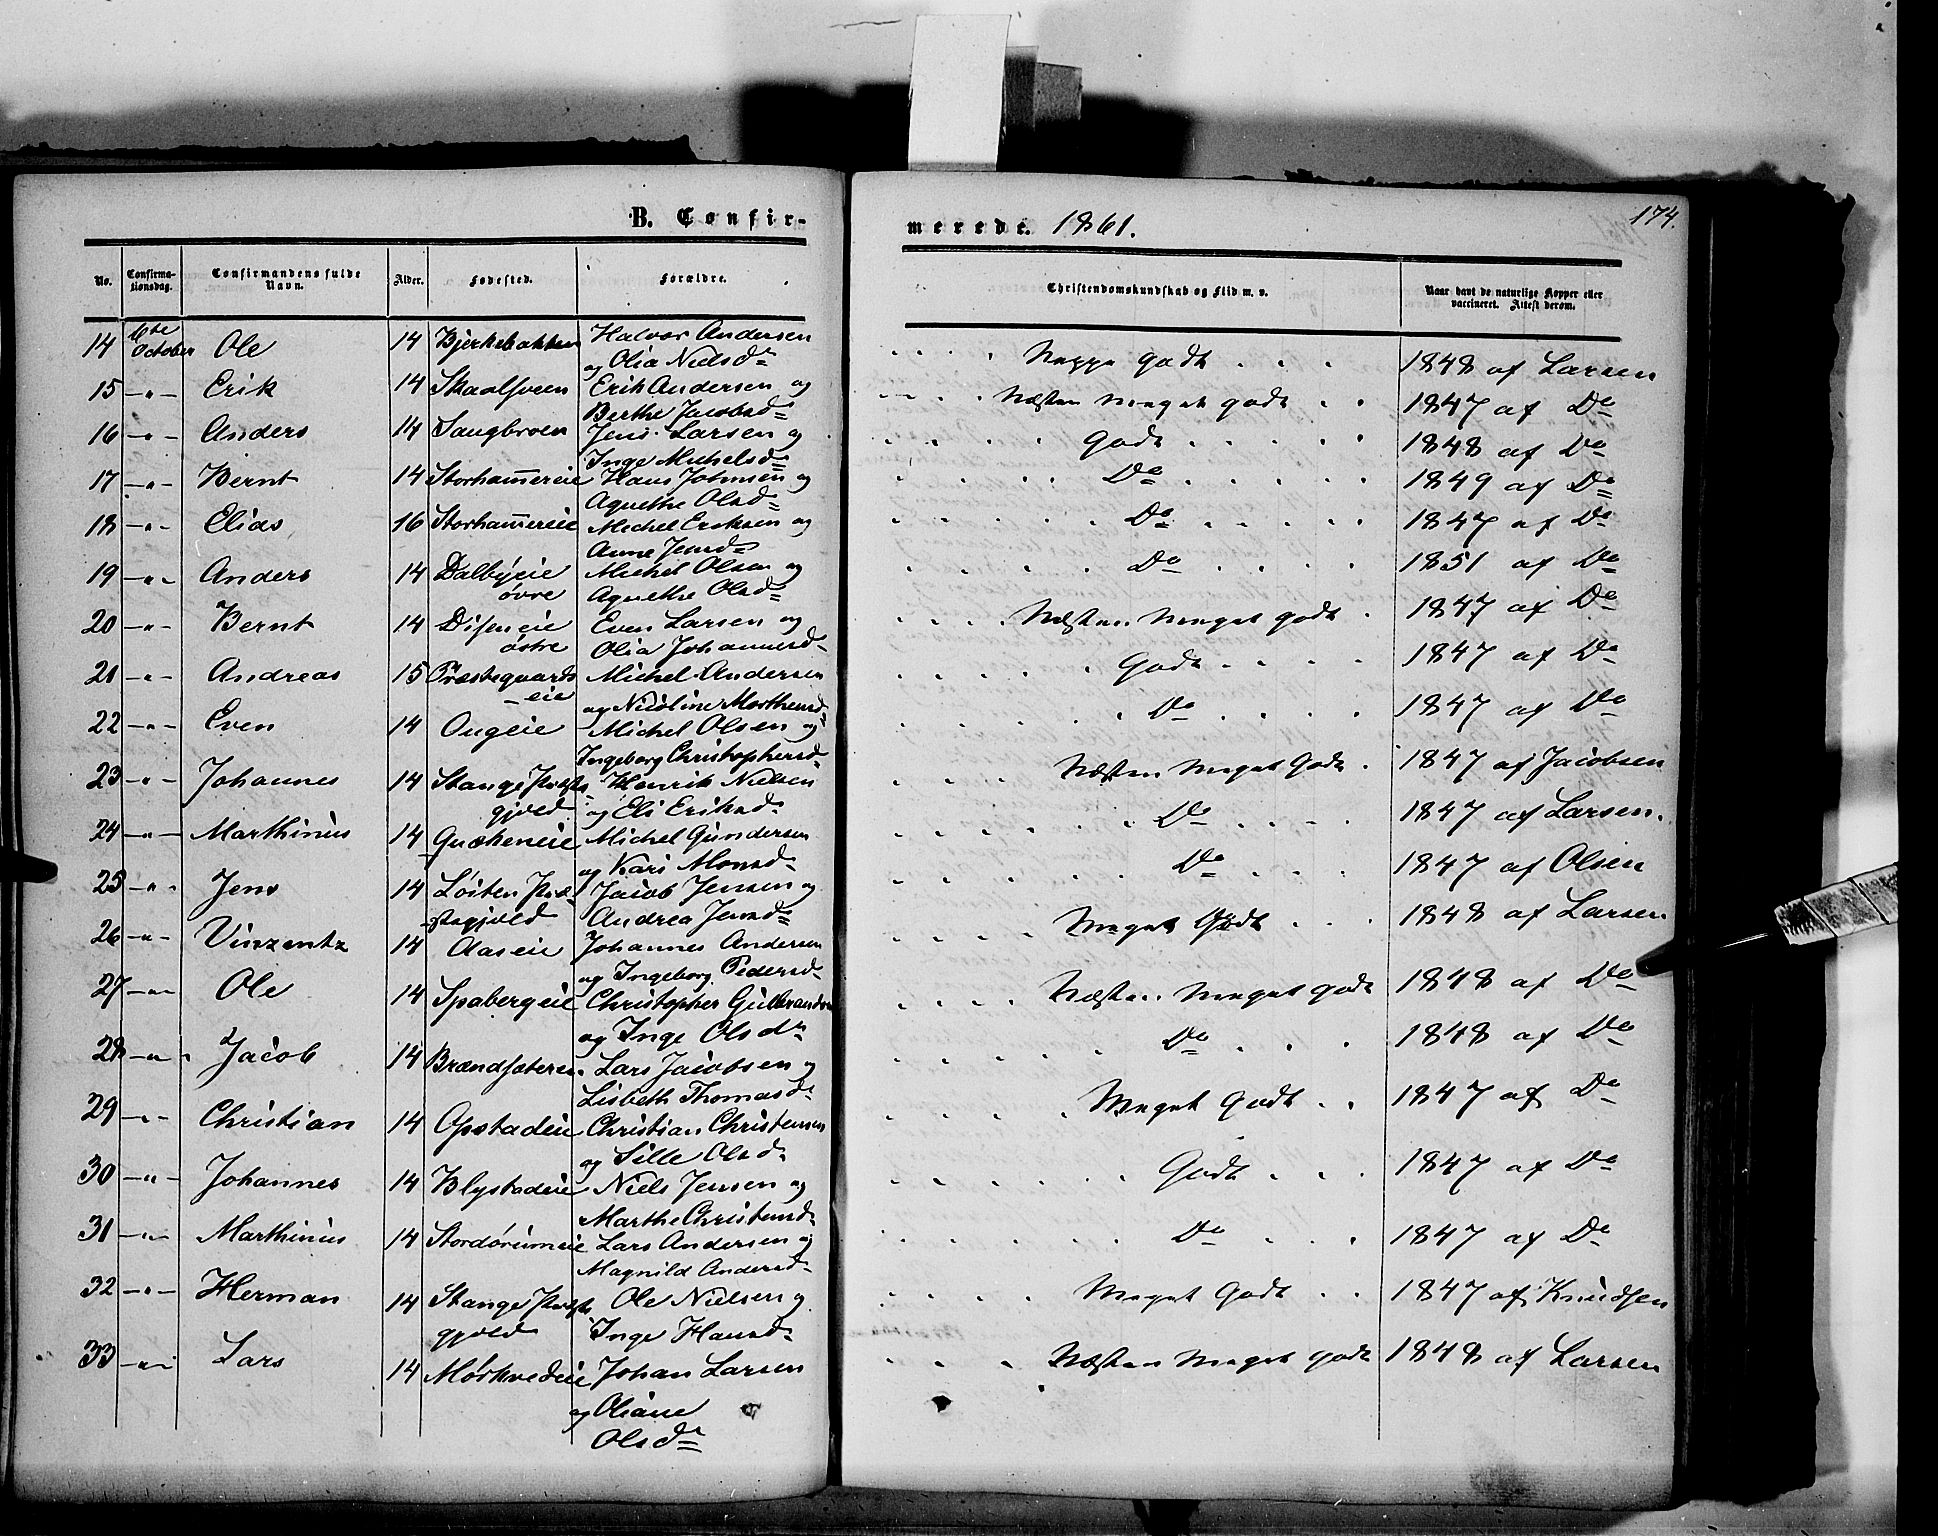 B. Confirmerede. 1861.
174.
No. Confirmationsdag. Confirmandens fulde Navn. Alder. Fødested. Forældre. Christendomskundskab og Flid m. v. Naar havt de naturlige Kopper eller vaccineret. Attest derom.
14 6te October Ole 14 Bjerkebakken Halvor Andersen og Olia Nielsd. Neppe godt 1848 af Larsen
15 -"- Erik 14 Skaolsveen Erik Andersen og Berthe Jacobsd. Næsten Meget godt 1847 af Do
16 -"- Anders 14 Sangbroen Jens Larsen og Inge Michelsd. Godt 1848 af Do
17 -"- Bernt 14 Storhammereie Hans Johnsen og Agnethe Olsd. Do 1849 af Do
18 -"- Elias 16 Storhammereie Michel Eriksen og Anne Jensd. Do 1847 af Do
19 -"- Anders 14 Dalbyeie øvre Michel Olsen og Agnethe Olsd. Do 1851 af Do
20 -"- Bernt 14 Diseneie østre Even Larsen og Olia Johannesd. Næsten Meget godt 1847 af Do
21 -"- Andreas 15 Præstegaards eie Michel Andersen og Nicoline Marthensd. Godt 1847 af Do
22 -"- Even 14 Ougeie Michel Olsen og Ingeborg Christophersd. Do 1847 af Do
23 -"- Johannes 14 Stange Præstegjeld Henrik Nielsen og Eli Eriksd. Næsten Meget Godt 1847 af Jacobsen
24 -"- Marthinius 14 Gudheneie Michel Gundersen og Kari Monsd. Do 1847 af Larsen.
25 -"- Jens 14 Løiten Præstegjeld Jacob Jensen og Andrea Jensd. Do 1847 af Olsen
26 -"- Vinzentz 14 Aaseie Johannes Andersen og Ingeborg Pedersd. Meget Godt 1848 af Larsen
27 -"- Ole 14 Spabergeie Christopher Gulbrandsen og Inge Olsd. Næsten Meget godt 1848 af Do
28 -"- Jacob 14 Brændsæteren Lars Jacobsen og Lisbeth Thomasd. Do 1848 af Do
29 -"- Christian 14 Opstadeie Christian Christensen og Sille Olsd. Meget Godt 1847 af Do
30 -"- Johannes 14 Blystadeie Niels Jensen og Marthe Christensd. Godt 1847 af Do
31 -"- Marthinius 14 Stordørumeie Lars Andersen og Magnild Andersd. Do 1847 af Do
32 -"- Herman 14 Stange Præstegjeld Ole Nielsen og Inge Hansd. Meget Godt 1847 af Knudsen
33 -"- Lars 14 Mørkvedeie Johan Larsen og Oliane Olsd. Næsten Meget godt 1848 af Larsen